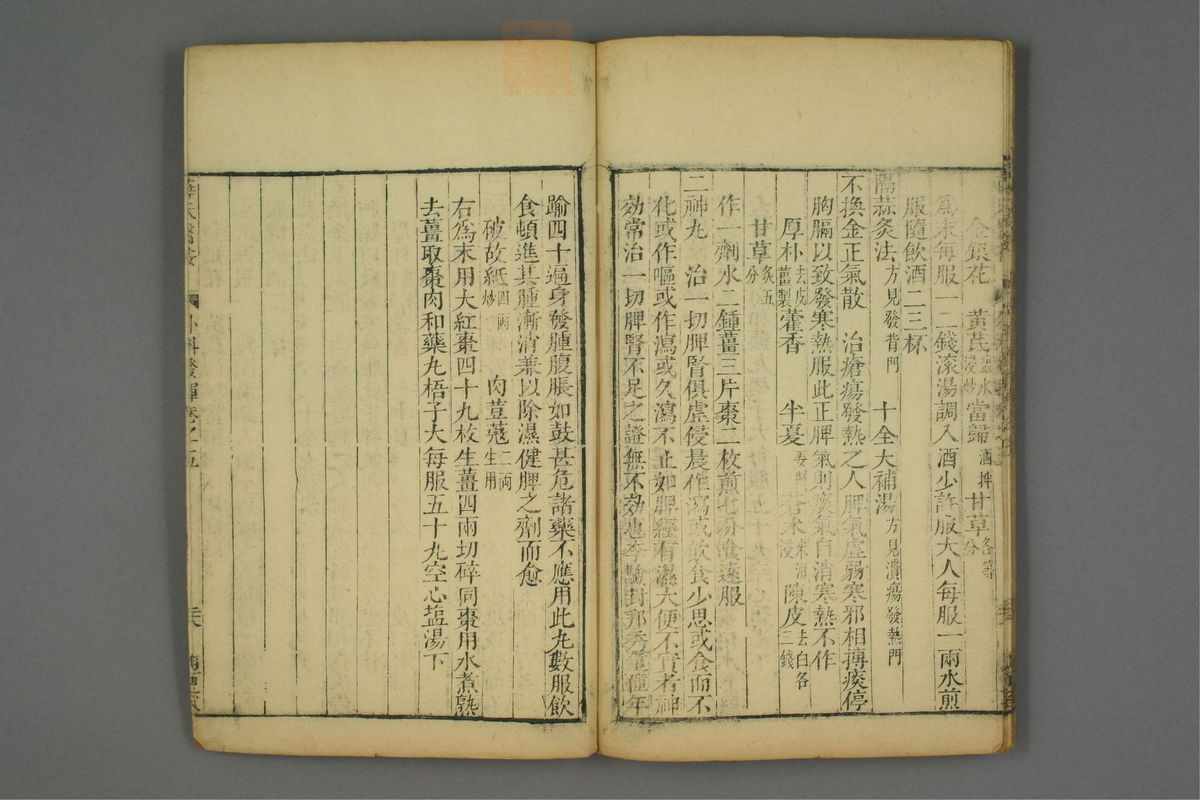 金銀花 黃芪鹽水浸炒當歸酒拌甘草各等分
爲末每服一二錢滚湯調入酒少許服大人每服一兩水煎
服隨飲酒二三杯
隔蒜灸法方見發背門 十全大補湯方見潰瘍發熱門
不換金正氣散 治瘡瘍發熱之人脾氣虛弱寒邪相搏痰停
胸膈以致發寒熱服此正脾氣則痰氣自消寒熱不作
厚朴去皮薑製藿香 半夏 蒼术米泔浸 陳皮去白各三錢
甘草炙五分
作一劑水二鍾薑三片棗二枚煎七分食遠服
二神丸 治一切脾腎俱虛侵晨作瀉或飲食少思或食而不
化或作嘔或作瀉或久瀉不止如脾經有濕大便不實者神
効常治一切脾腎不足之證無不効也李驗封邦秀 年
踰四十遍身發腫腹脹如鼓甚危諸藥不應用此丸數服飲
食頓進其腫漸消兼以除濕健脾之劑而愈
破故紙四兩炒 肉荳蔻二兩生用
右爲末用大紅棗四十九枚生薑四兩切碎同棗用水煮熟
去薑取棗肉和藥丸梧子大每服五十丸空心盐湯下
薛氏醫案 外科發揮 卷之五